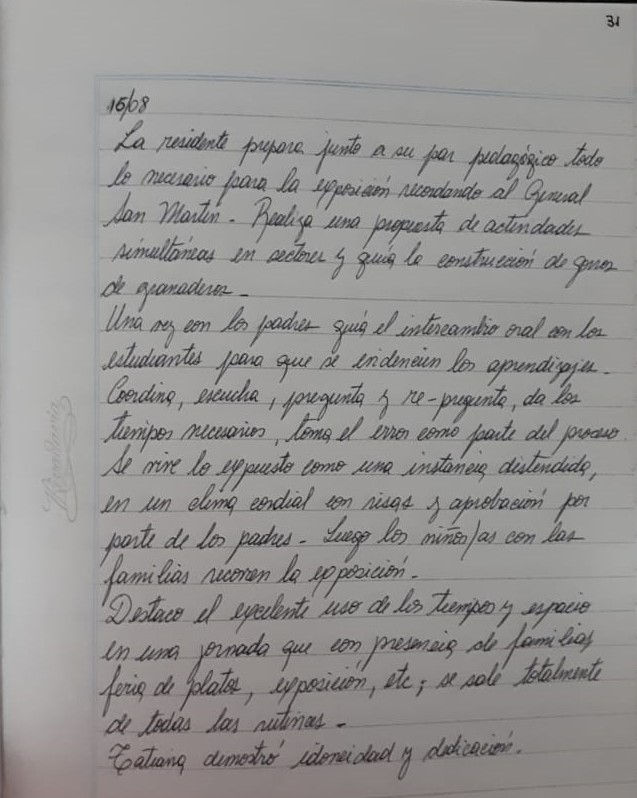 31
15/08
La residente prepara junto a su par pedagógico todo
lo necesario para la exposición recordando al General
San Martín - Realiza una propuesta de actividades
simultáneas en sectores y guía la construcción de gorros
de granaderos -
Una vez con los padres guía el intercambio oral con los
estudiantes para que se evidencien los aprendizajes -
Coordina, escucha, pregunta y re-pregunta, da los
tiempos necesarios, toma el error como parte del proceso.
Se vive lo expuesto como una instancia distendida,
en un clima cordial con risas y aprobación por
parte de los padres - Luego los niños/as con las
familias recorren la exposición -
Destaco el excelente uso de los tiempos y espacio
en una jornada que con presencia de familias,
feria de platos, exposición, etc; se sale totalmente
de todas las rutinas -
Tatiana demostró idoneidad y dedicación.
Rivadavia